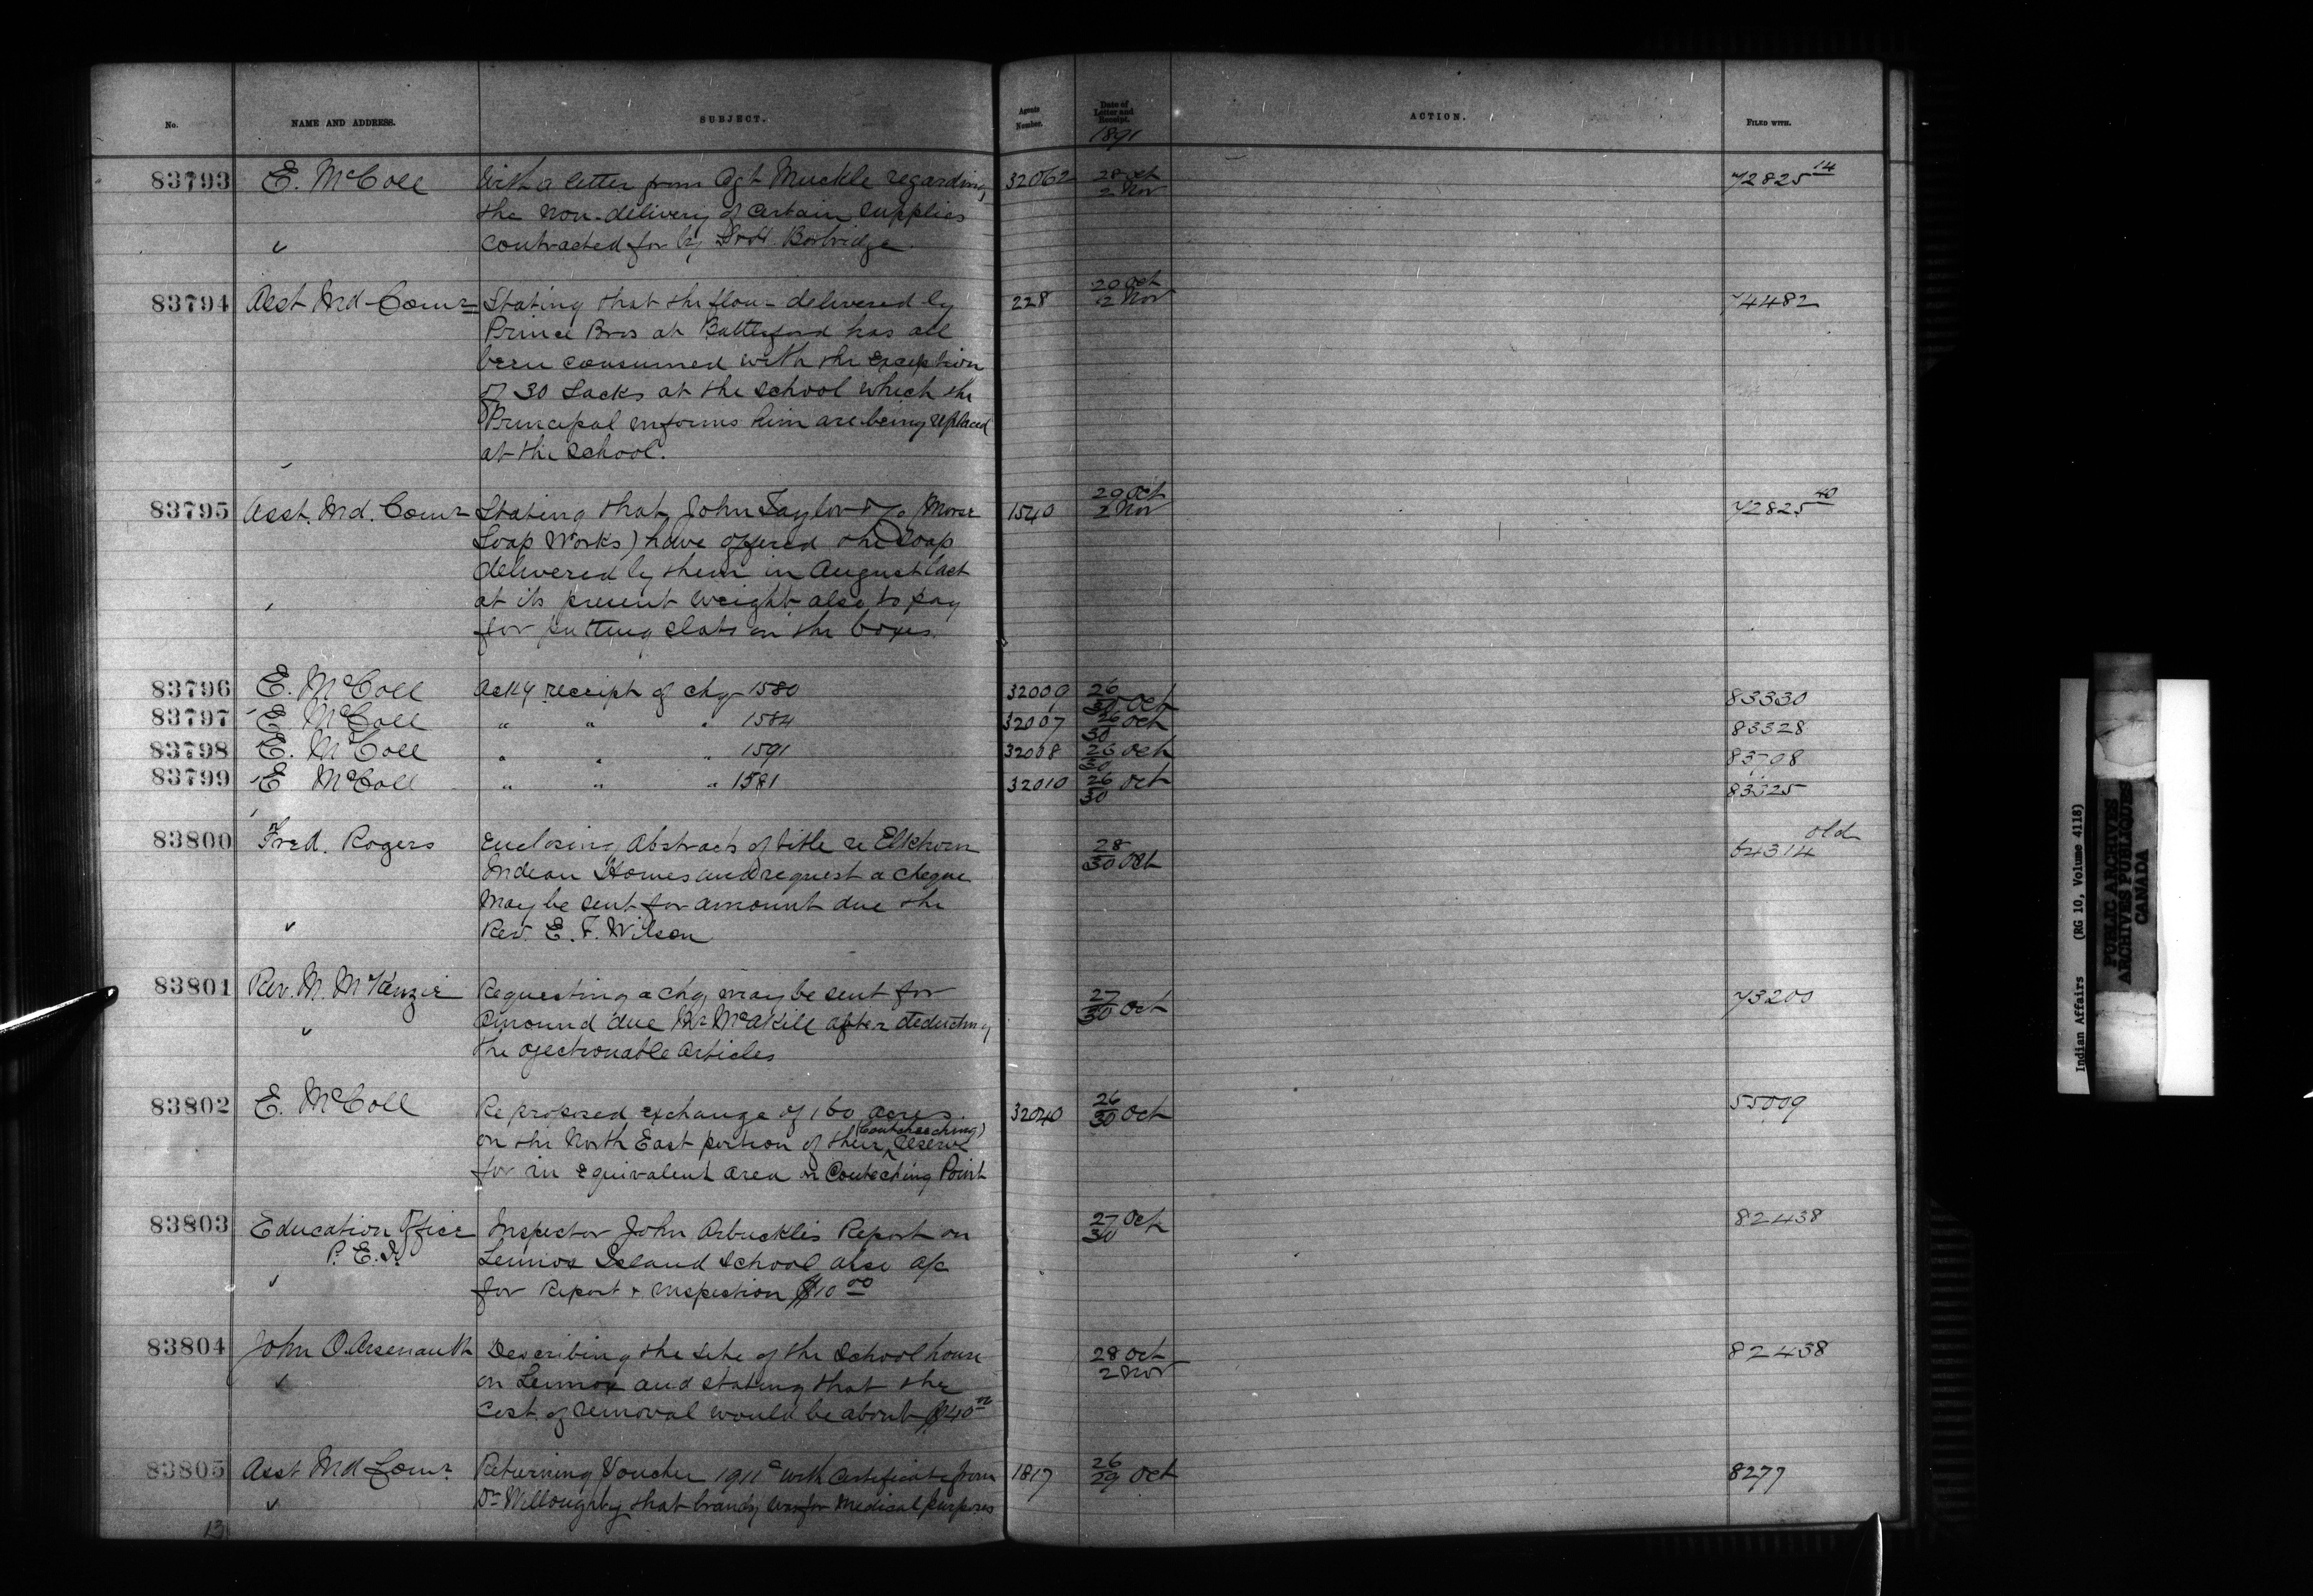 No. NAME AND ADDRESS. SUBJECT. Agents Number. Date of Letter and Receipt. ACTION. FILED WITH.
1891
83793 E. McColl With a letter from Agt Muckle regarding 32062 28 Oct 72825 14
the non-delivery of certain supplies 2 Nov
contracted for by Borbridge.
83794 Asst Ind Comr Stating that the flour delivered by 228 20 Oct 74482
Prince Bros at Battleford has all 2 Nov
been consumed with the exception
of 30 sacks at the school which the
Principal informs him are being replaced
at the school.
83795 Asst. Ind. Comr Stating that John Taylor & Co (Morse 1540 20 Oct 72825 40
Soap Works) have offered the soap 2 Nov
delivered by them in August last
at its present weight also to pay
for putting slats on the boxes.
83796 E. McColl Ackg receipt of chq 1580 32009 26 83330
30 Oct
83797 E McColl " " " 1584 32007 26 Oct 83328
30
83798 E. McColl " " " 1591 32008 26 Oct
30
83799 E McColl " " " 1581 32010 26 Oct 83325
30
83800 Fred. Rogers Enclosing Abstracts of title re Elkhorn 28 old
Indian Homes and request a cheque 30 Oct 64314
may be sent for amount due the
Rev. E. F. Wilson
83801 Rev. M. McKenzie Requesting a chq may be sent for 27
amound due Mr after deducting 30 Oct
the ojectionable articles
83802 E. McColl Re proposed exchange of 160 acres 32040 26 55009
on the North East portion of their (Coutcheeching) Reserve 30 Oct
for an equivalent area on Coutcheching Point
83803 Education Office Inspector John Arbuckles Report on 27 Oct 82438
P. E. I. Lennox Island School also a/c 30
for Report & inspection $10 00
83804 John O. Arsenault Describing the site of the School house 28 Oct 82438
on Lennox and stating that the 2 Nov
cost of removal would be about $40
83805 Asst Ind Comr. Returning Voucher 1911 with certificate from 1817 26 8277
Dr Willoughby that brandy was for medical purposes 29 Oct
13
Indian Affairs (RG 10, Volume 4118)
PUBLIC ARCHIVES
ARCHIVES PUBLIQUES
CANADA